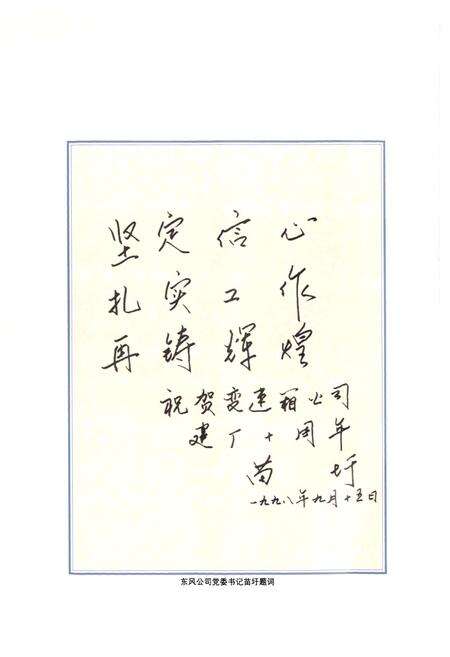 坚定信心
扎实工作
再铸辉煌
祝贺变速箱公司
建厂十周年
苗圩
一九九八年九月十五日
东风公司党委书记苗圩题词